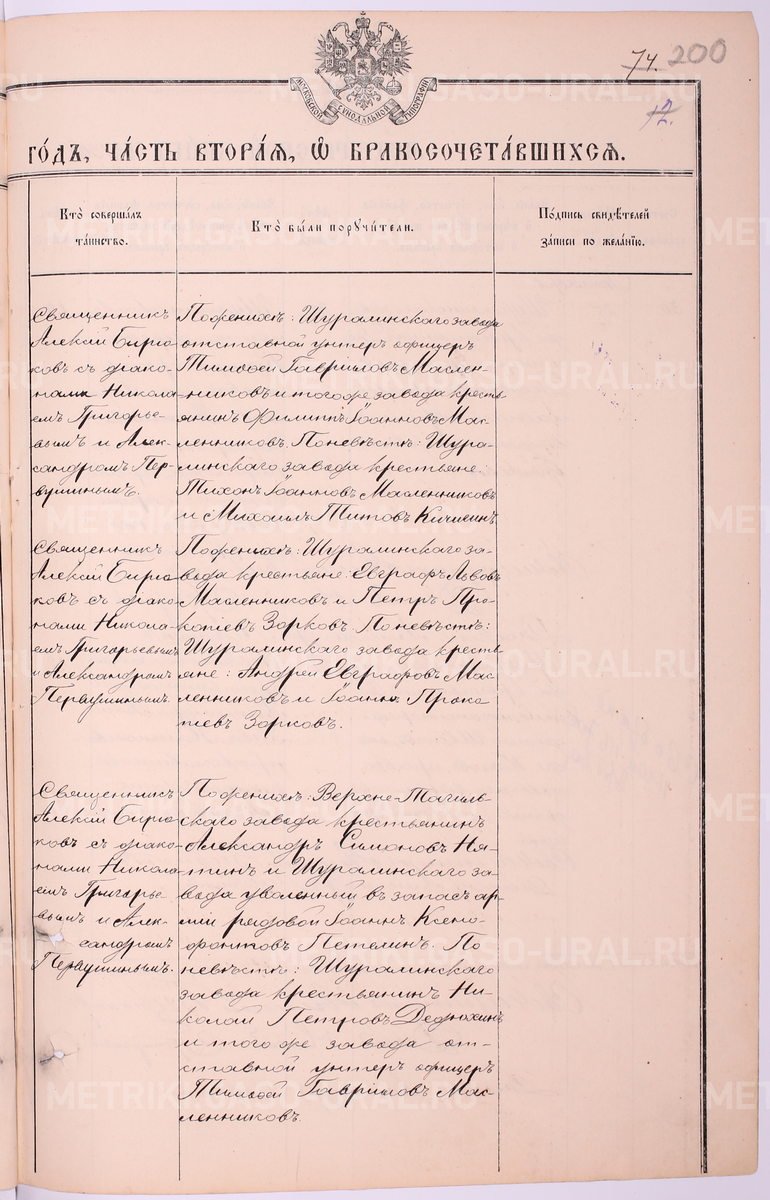 74. 200
12.
МОСКОВСКОЙ СѴНОДАЛЬНОЙ ТИПОГРАФІИ
ГО́ДЪ, ЧА́СТЬ ВТОРА́Я, Ѽ БРАКОСОЧЕТА́ВШИХСЯ.
Кто̀ соверша́лъ
та́инство.
Кто̀ бы́ли порꙋчи́тели.
По́дпись свидѣ́телей
за́писи по жела́нїю.
Священникъ
Алексій Бирю-
ковъ съ діако-
нами Никола-
емъ Григорье-
вымъ и Алек-
сандромъ Пер-
вушинымъ.
По женихѣ: Шуралинскаго завода
отставной унтеръ офицеръ
Тимофей Гавріиловъ Маслен-
никовъ и того же завода кресть-
янинъ Филиппъ Іоанновъ Мас-
ленниковъ. По невѣстѣ: Шура-
линскаго завода крестьяне:
Тихонъ Іоанновъ Масленниковъ
и Михаилъ Титовъ Кичигинъ.
Священникъ
Алексій Бирю-
ковъ съ діако-
нами Никола-
емъ Григорьевымъ
и Александромъ
Первушинымъ.
По женихѣ: Шуралинскаго за-
вода крестьяне: Евграфъ Львовъ
Масленниковъ и Петръ Про-
копіевъ Зорковъ. По невѣстѣ:
Шуралинскаго завода кресть-
яне: Андрей Евграфовъ Мас-
ленниковъ и Іоаннъ Прока-
піевъ Зорковъ.
Священникъ
Алексій Бирю-
ковъ съ діако-
нами Никола-
емъ Григорье-
вымъ и Алек-
сандромъ
Первушинымъ.
По женихѣ: Верхне-Тагиль-
скаго завода крестьянинъ
Александръ Симоновъ
и Шуралинскаго за-
вода уволенный въ запасъ ар-
міи рядовой Іоаннъ Ксено-
фонтовъ Петелинъ. По
невѣстѣ: Шуралинскаго
завода крестьянинъ Ни-
колай Петровъ Дедюхинъ
и того же завода от-
ставной унтеръ офицеръ
Тимофей Гавріиловъ Мас-
ленниковъ.
METRIKI.GASO-URAL.RU